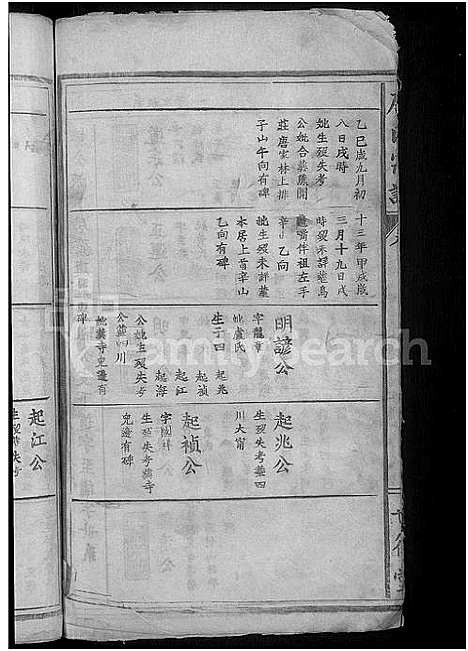 乙巳歲九月初
八日戌時
妣生歿失考
公妣合葬鳳開
莊唐家林上排
子山午向有碑
十三年甲戌歲
三月十九日戌
時歿未詳葬烏
嘴伴祖左手
辛山乙向
妣生歿未詳葬
本居上首辛山
乙向有碑
明諺公
字龍章
妣盧氏
生子四
起兆
起禎
起江
起海
公妣生歿失考
公葬四川
妣葬寺兒邊有
碑
起兆公
生歿失考葬四
川大甯
起禎公
字國祥
生歿失考葬寺
兒邊有碑
起江公
生歿失考
FamilySearch